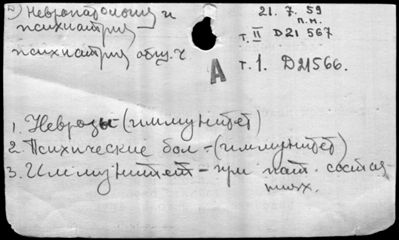 Невропатология и
психиатрия
психиатрия общ. ч
21. 7. 59
п.н.
т. II D21 567
А т. 1. D21566.
1. Неврозы (иммунитет)
2. Психические бол - (иммунитет)
3. Иммунитет - при пат. состоя
ниях.